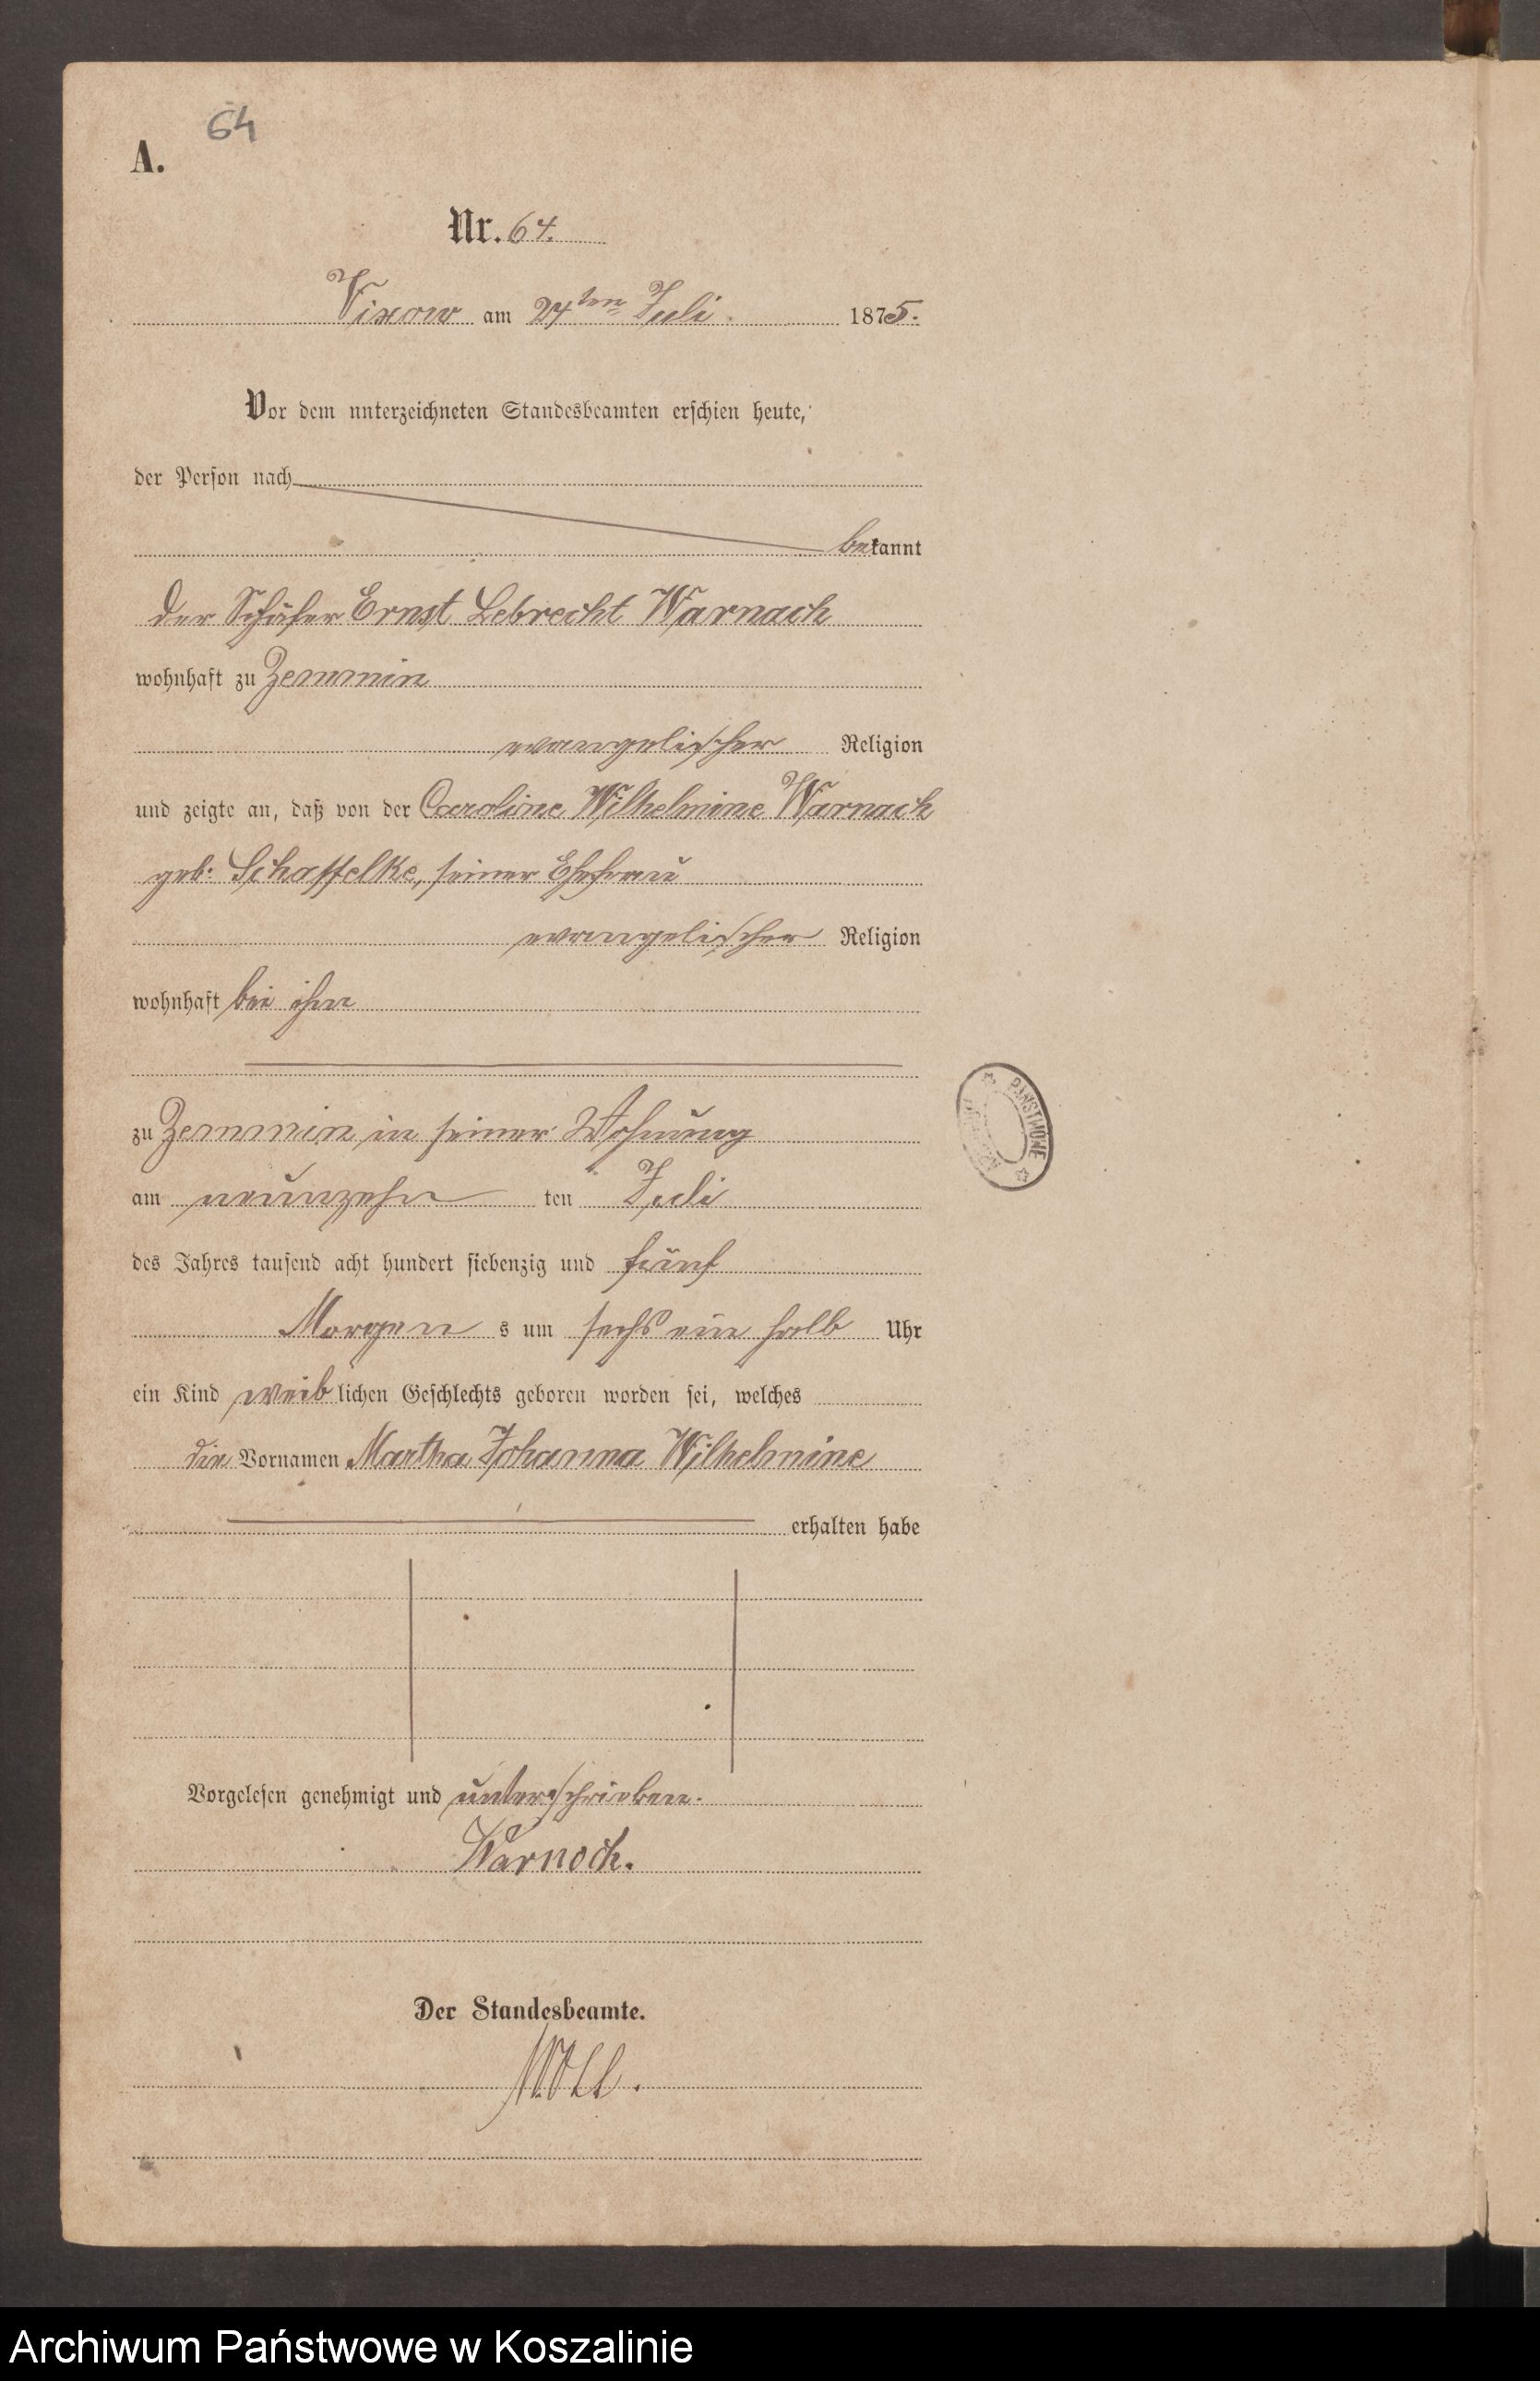 64
A.
Nr. 64.
Vixow am 24ten Juli 1875.
Vor dem unterzeichneten Standesbeamten erschien heute,
der Person nach
bekannt
der Schäfer Ernst Lebrecht Warnach
wohnhaft zu Zemmin
evangelischer Religion
und zeigte an, daß von der Caroline Wilhelmine Warnach
geb: Schaffelke, seiner Ehefrau
evangelischer Religion
wohnhaft bei ihm
zu Zemmin in seiner Wohnung
am neunzehn ten Juli
des Jahres tausend acht hundert siebenzig und fünf
Morgen s um sechs ein halb Uhr
ein Kind weib lichen Geschlechts geboren worden sei, welches
die Vornamen Martha Johanna Wilhelmine
erhalten habe
PAŃSTWOWE
Vorgelesen genehmigt und unterschrieben.
Warnoch.
Der Standesbeamte.
Archiwum Państwowe w Koszalinie